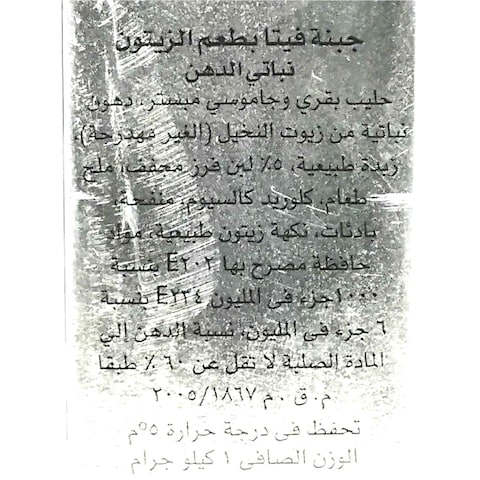 جبنة فيتا بطعم الزيتون
نباتي الدهن
حليب بقري وجاموسي مبستر، دهون
نباتية من زيوت النخيل (الغير مهدرجة)،
زبدة طبيعية، ٥٪ لبن فرز مجفف، ملح
طعام، كلوريد كالسيوم، منفحة،
بادئات، نكهة زيتون طبيعية، مواد
حافظة مصرح بها E٢٠٢ بنسبة
١٠٠٠جزء فى المليون E٢٣٤ بنسبة
٦ جزء فى المليون، نسبة الدهن الي
المادة الصلبة لا تقل عن ٦٠ ٪ طبقا
م. ق . م ٢٠٠٥/١٨٦٧
تحفظ فى درجة حرارة ٥°م
الوزن الصافى ١ كيلو جرام